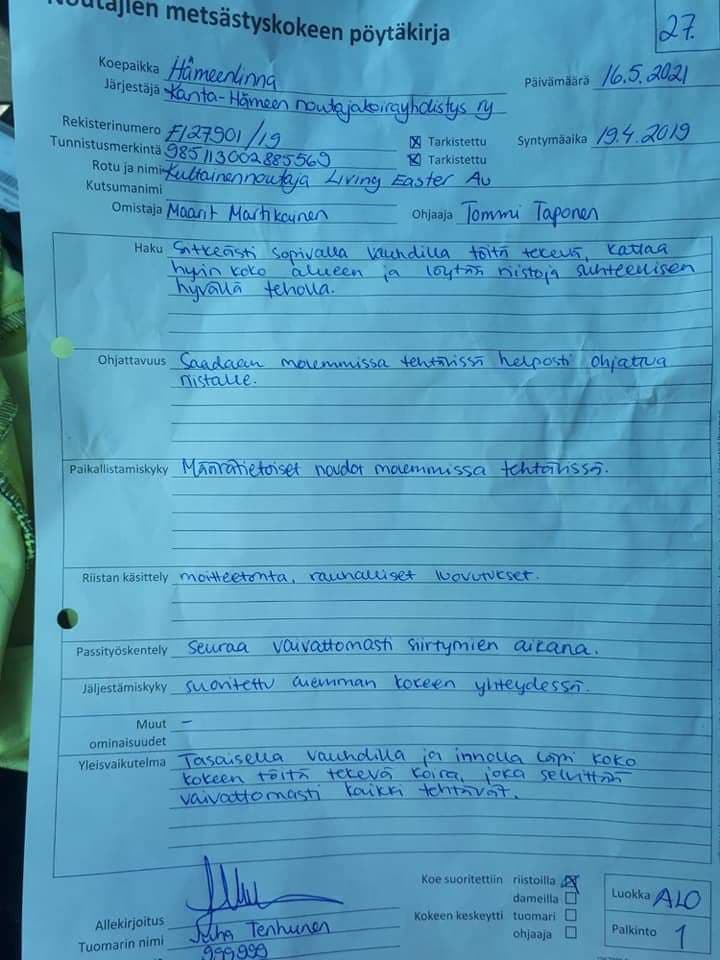 Noutajien metsästyskokeen pöytäkirja
27.
Koepaikka Hämeenlinna Päivämäärä 16.5.2021
Järjestäjä Kanta-Hämeen noutajakoirayhdistys ry
Rekisterinumero FI27901/19 ☒ Tarkistettu Syntymäaika 19.4.2019
Tunnistusmerkintä 985113002885569 ☒ Tarkistettu
Rotu ja nimi Kultainennoutaja Living Easter Au
Kutsumanimi
Omistaja Maarit Martikainen Ohjaaja Tommi Taponen
Haku Sitkeästi sopivalla vauhdilla töitä tekevä, kattaa
hyvin koko alueen ja löytää riistoja suhteellisen
hyvällä teholla.
Ohjattavuus Saadaan molemmissa tehtävissä helposti ohjattua
riistalle.
Paikallistamiskyky Määrätietoiset noudot molemmissa tehtävissä.
Riistan käsittely moitteetonta, rauhalliset luovutukset.
Passityöskentely Seuraa vaivattomasti siirtymien aikana.
Jäljestämiskyky suoritettu aiemman kokeen yhteydessä.
Muut –
ominaisuudet
Yleisvaikutelma Tasaisella vauhdilla ja innolla läpi koko
kokeen töitä tekevä koira, joka selvittää
vaivattomasti kaikki tehtävät.
Koe suoritettiin riistoilla ☒
dameilla ☐
Kokeen keskeytti tuomari ☐
ohjaaja ☐
Luokka ALO
Palkinto 1
Allekirjoitus
Tuomarin nimi Juha Tenhunen
999999